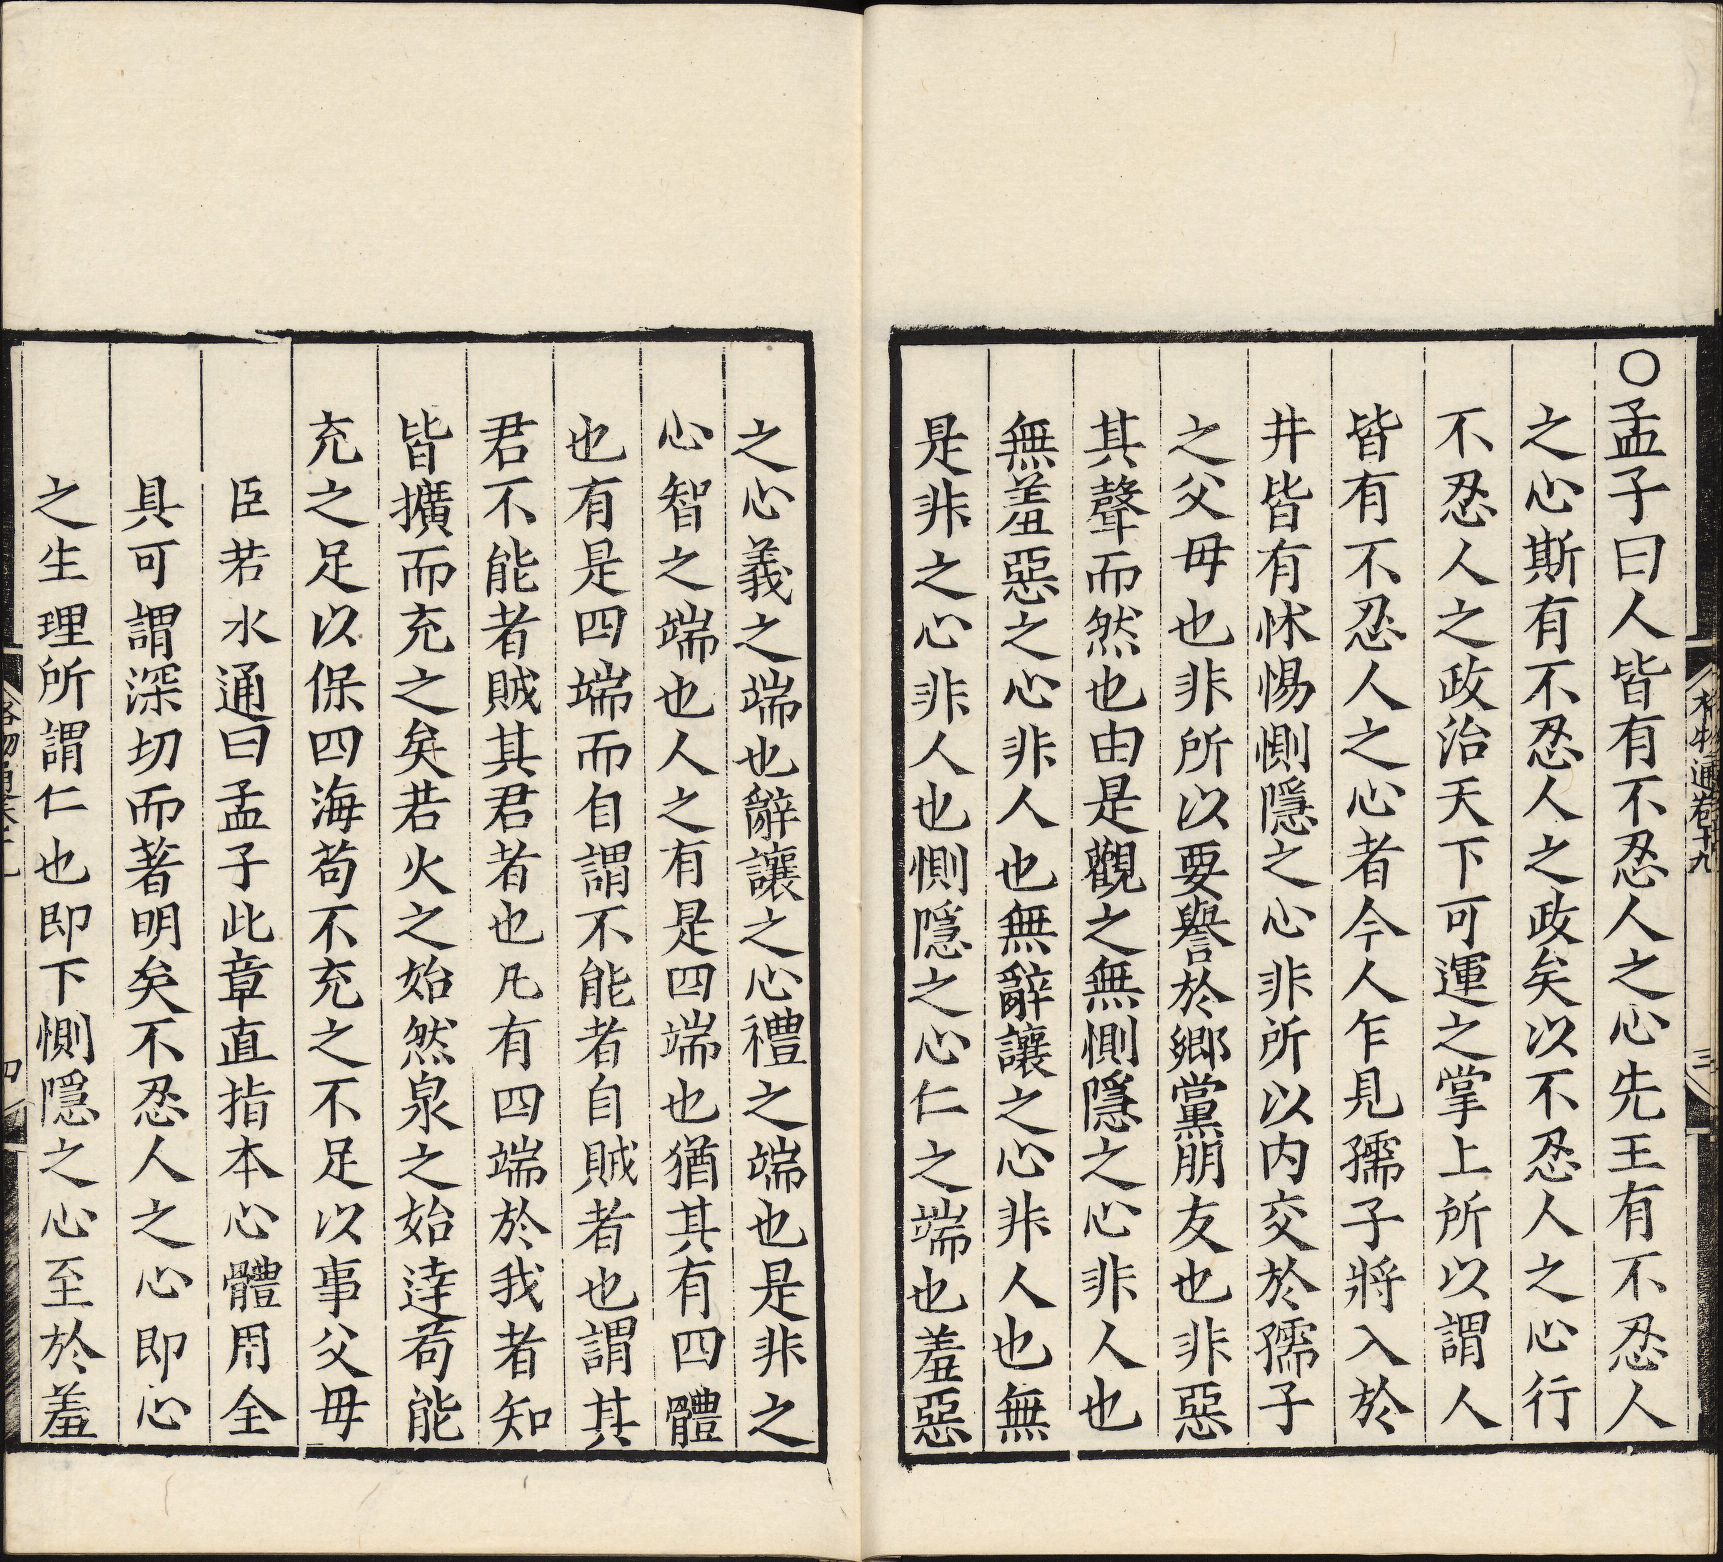 格物通卷十九
三
○孟子曰人皆有不忍人之心先王有不忍人
之心斯有不忍人之政矣以不忍人之心行
不忍人之政治天下可運之掌上所以謂人
皆有不忍人之心者今人乍見孺子將入於
井皆有怵惕惻隱之心非所以内交於孺子
之父母也非所以要譽於鄉黨朋友也非惡
其聲而然也由是觀之無惻隱之心非人也
無羞惡之心非人也無辭讓之心非人也無
是非之心非人也惻隱之心仁之端也羞惡
之心義之端也辭讓之心禮之端也是非之
心智之端也人之有是四端也猶其有四體
也有是四端而自謂不能者自賊者也謂其
君不能者賊其君者也凡有四端於我者知
皆擴而充之矣若火之始然泉之始達苟能
充之足以保四海苟不充之不足以事父母
臣若水通曰孟子此章直指本心體用全
具可謂深切而著明矣不忍人之心即心
之生理所謂仁也即下惻隱之心至於羞
四